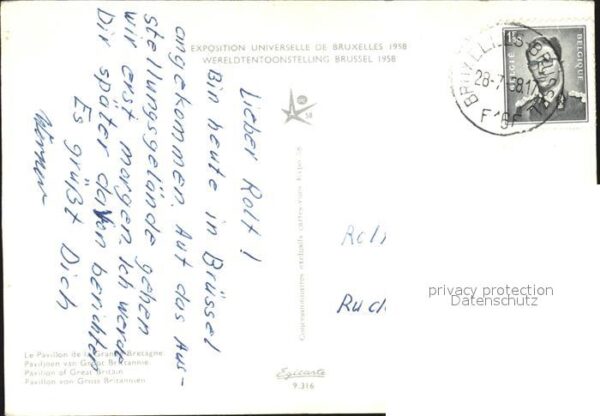 EXPOSITION UNIVERSELLE DE BRUXELLES 1958
WERELDTENTOONSTELLING BRUSSEL 1958
58
BELGIË
BELGIQUE
BRUXELLES-BRUSSEL
28-7-58.17
Lieber Rolf!
Bin heute in Brüssel
angekommen. Auf das Aus-
stellungsgelände gehen
wir erst morgen. Ich werde
Dir später davon berichten
Es grüßt Dich
Werner
Rol
Ruck
privacy protection
Datenschutz
Le Pavillon de la Grande Bretagne
Paviljoen van Groot Brittannië
Pavilion of Great Britain
Pavillon von Gross Britannien
Egicarte
9.316